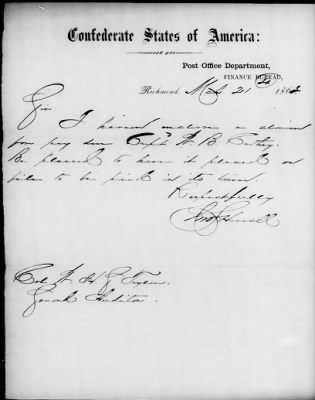 Confederate States of America:
Post Office Department,
FINANCE BUREAU,
Richmond, 21 186
Sir
I herewith enclose a claim
for pay due Capt W B
Be pleased to have it placed on
file to be paid in its turn.
Respectfully
Col W H S Taylor
Second Auditor